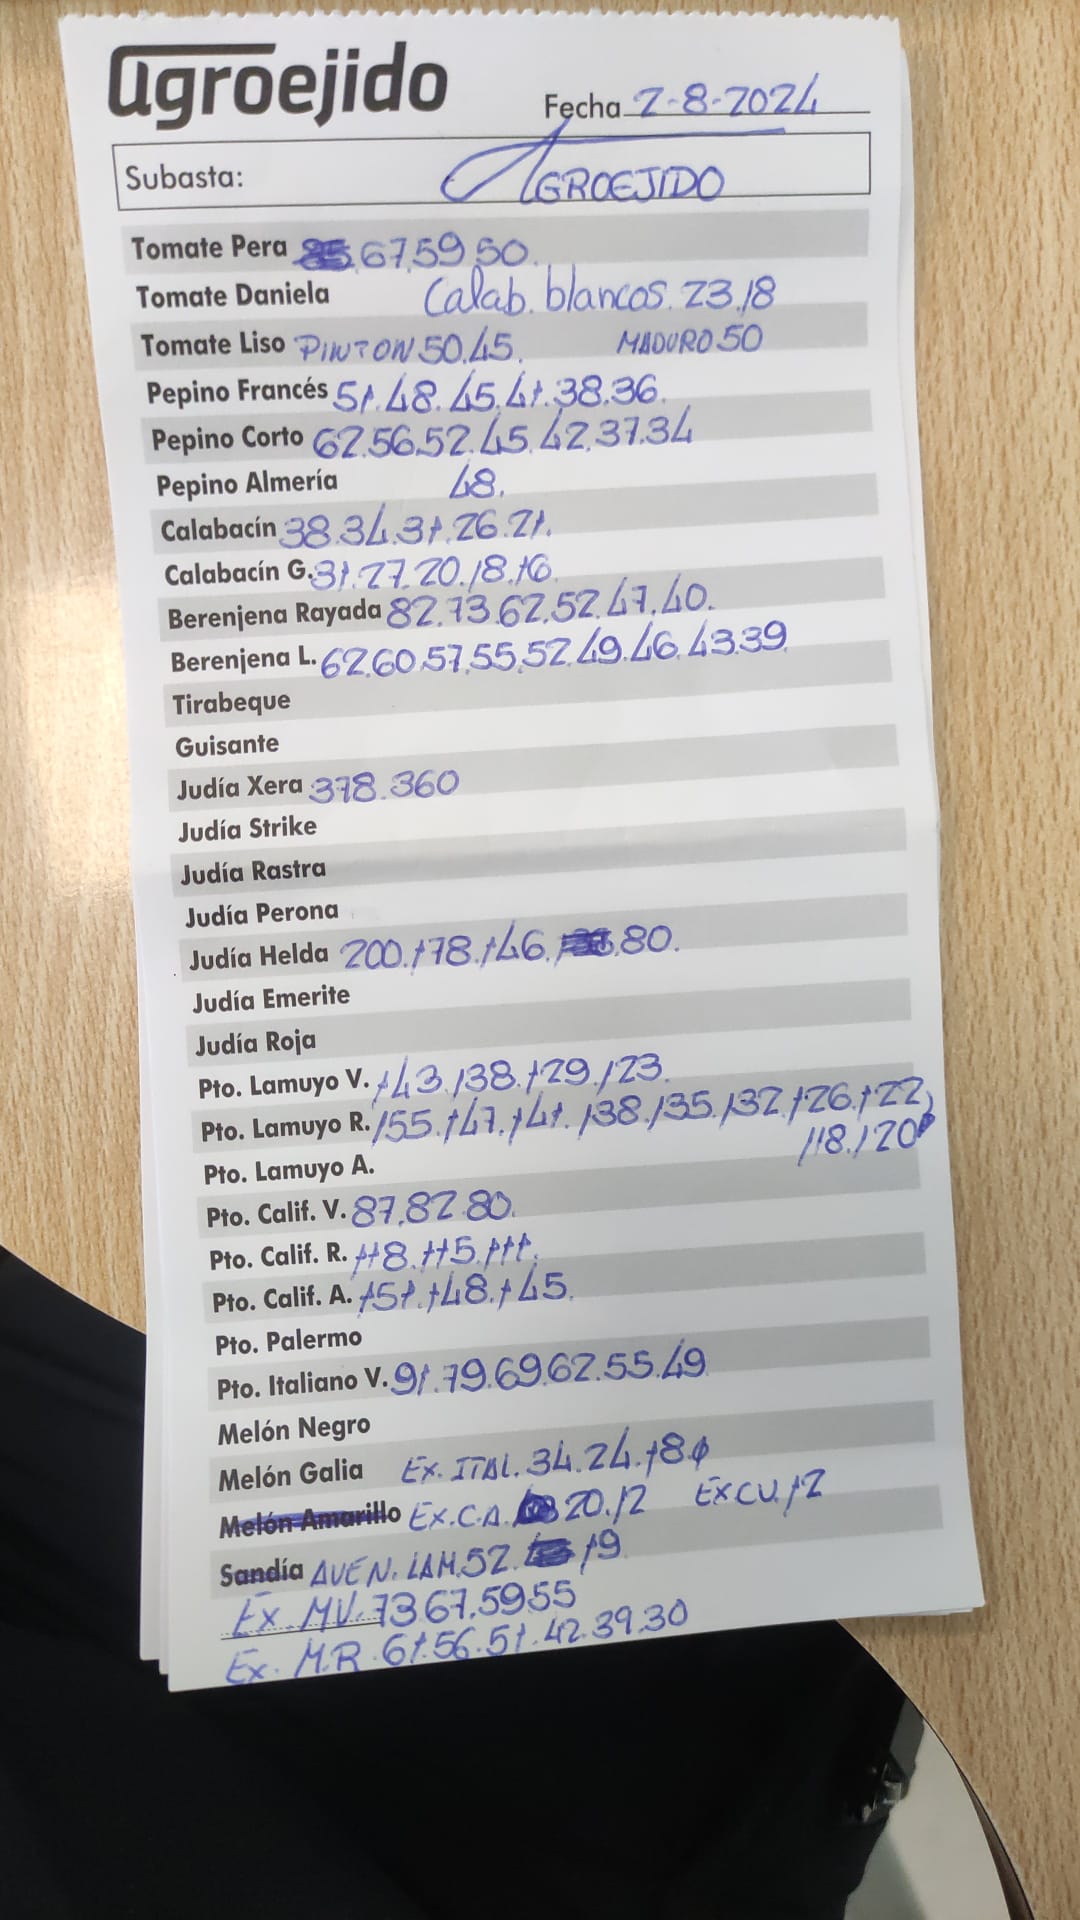 agroejido
Fecha 2-8-2024
Subasta: AGROEJIDO
Tomate Pera 67.59.50.
Tomate Daniela Calab. blancos. 23.18
Tomate Liso PINTON 50.45. MADURO 50
Pepino Francés 51.48.45.41.38.36.
Pepino Corto 62.56.52.45.42.37.34
Pepino Almería 48.
Calabacín 38.34.31.26.21.
Calabacín G. 31.27.20.18.16.
Berenjena Rayada 82.73.62.52.47.40.
Berenjena L. 62.60.57.55.52.49.46.43.39
Tirabeque
Guisante
Judía Xera 378.360
Judía Strike
Judía Rastra
Judía Perona
Judía Helda 200.178.146. 80.
Judía Emerite
Judía Roja
Pto. Lamuyo V. 143.138.129.123.
Pto. Lamuyo R. 155.147.141.138.135.132.126.122,
118.120
Pto. Lamuyo A.
Pto. Calif. V. 87.82.80.
Pto. Calif. R. 118.115.111.
Pto. Calif. A. 151.148.145.
Pto. Palermo
Pto. Italiano V. 91.79.69.62.55.49
Melón Negro
Melón Galia Ex. ITAL. 34.24.18.
Melón Amarillo Ex.C.A. 20.12 EXCU.12
Sandía AVEN. LAM.52. 19
Ex. MV. 73.67.59.55
Ex. M.R. 61.56.51.42.39.30